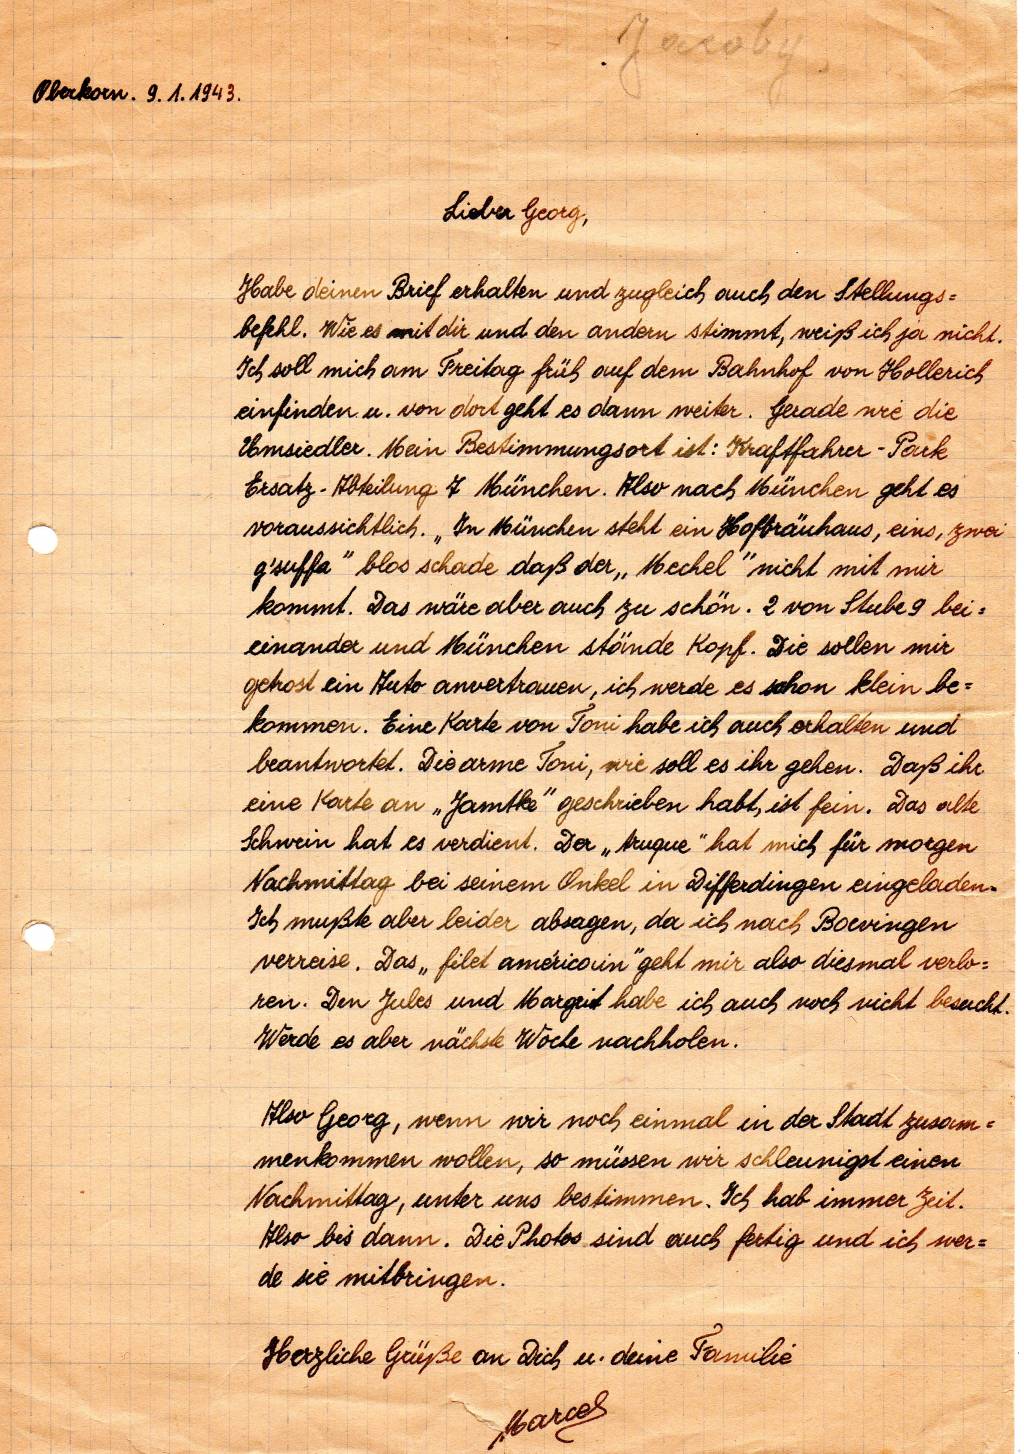 Jacoby
Oberkorn. 9.1.1943.
Lieber Georg,
Habe deinen Brief erhalten und zugleich auch den Stellungs=
befehl. Wie es mit dir und den andern stimmt, weiß ich ja nicht.
Ich soll mich am Freitag früh auf dem Bahnhof von Hollerich
einfinden u. von dort geht es dann weiter. Gerade wie die
Umsiedler. Mein Bestimmungsort ist: Kraftfahrer-Park
Ersatz-Abteilung 7 München. Also nach München geht es
voraussichtlich. „In München steht ein Hofbräuhaus, eins, zwei
g'suffa" blos schade daß der „Mechel" nicht mit mir
kommt. Das wäre aber auch zu schön. 2 von Stube 9 bei=
einander und München stände Kopf. Die sollen mir
getrost ein Auto anvertrauen, ich werde es schon klein be=
kommen. Eine Karte von Toni habe ich auch erhalten und
beantwortet. Die arme Toni, wie soll es ihr gehen. Daß ihr
eine Karte an „Jamtke" geschrieben habt, ist fein. Das alte
Schwein hat es verdient. Der „truque" hat mich für morgen
Nachmittag bei seinem Onkel in Differdingen eingeladen.
Ich mußte aber leider absagen, da ich nach Boevingen
verreise. Das „filet américain" geht mir also diesmal verlo=
ren. Den Jules und Margrit habe ich auch noch nicht besucht.
Werde es aber nächste Woche nachholen.
Also Georg, wenn wir noch einmal in der Stadt zusam=
menkommen wollen, so müssen wir schleunigst einen
Nachmittag, unter uns bestimmen. Ich hab immer Zeit.
Also bis dann. Die Photos sind auch fertig und ich wer=
de sie mitbringen.
Herzliche Grüße an Dich u. deine Familie
Marcel